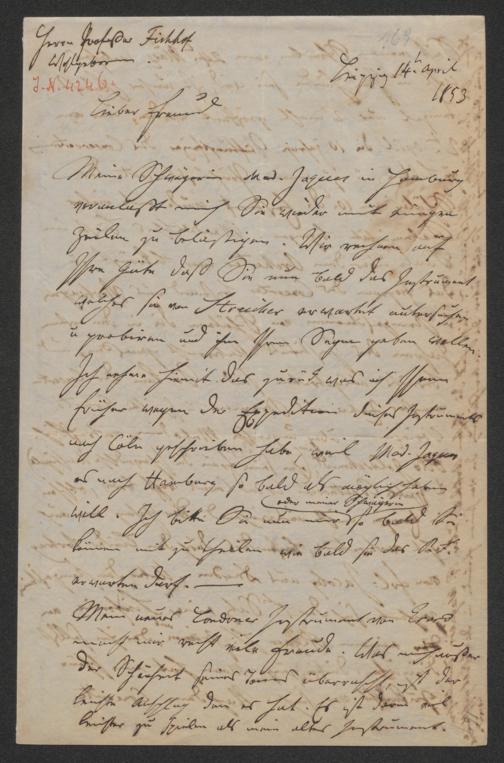 Herrn Professor Fischhof
Wohlgeboren.
J.N. 4246.
163
Leipzig 14t April
1853
Lieber Freund
Meine Schwägerin Mad. Jaques in Hamburg
veranlaßt mich Sie wieder mit einigen
Zeilen zu belästigen. Wir rechnen auf
Ihre Güte daß Sie nun bald das Instrument
welches sie von Streicher erwartet untersuchen
u probiren und ihm Ihren Segen geben wollen.
Ich nehme hiermit das zurück was ich Ihnen
früher wegen der Expedition dieses Instruments
nach Cöln geschrieben habe, weil Mad. Jaques
es nach Hamburg so bald als möglich haben
oder meiner Schwägerin
will. Ich bitte Sie nun mir so bald Sie
können mit zu theilen wie bald sie das Instr.
erwarten darf.
Mein neues Londoner Instrument von Erard
macht mir recht viele Freude. Was mich außer
der Schönheit seines Tones überrascht, ist der
leichte Anschlag den es hat. Es ist darin viel
leichter zu spielen als mein altes Instrument.